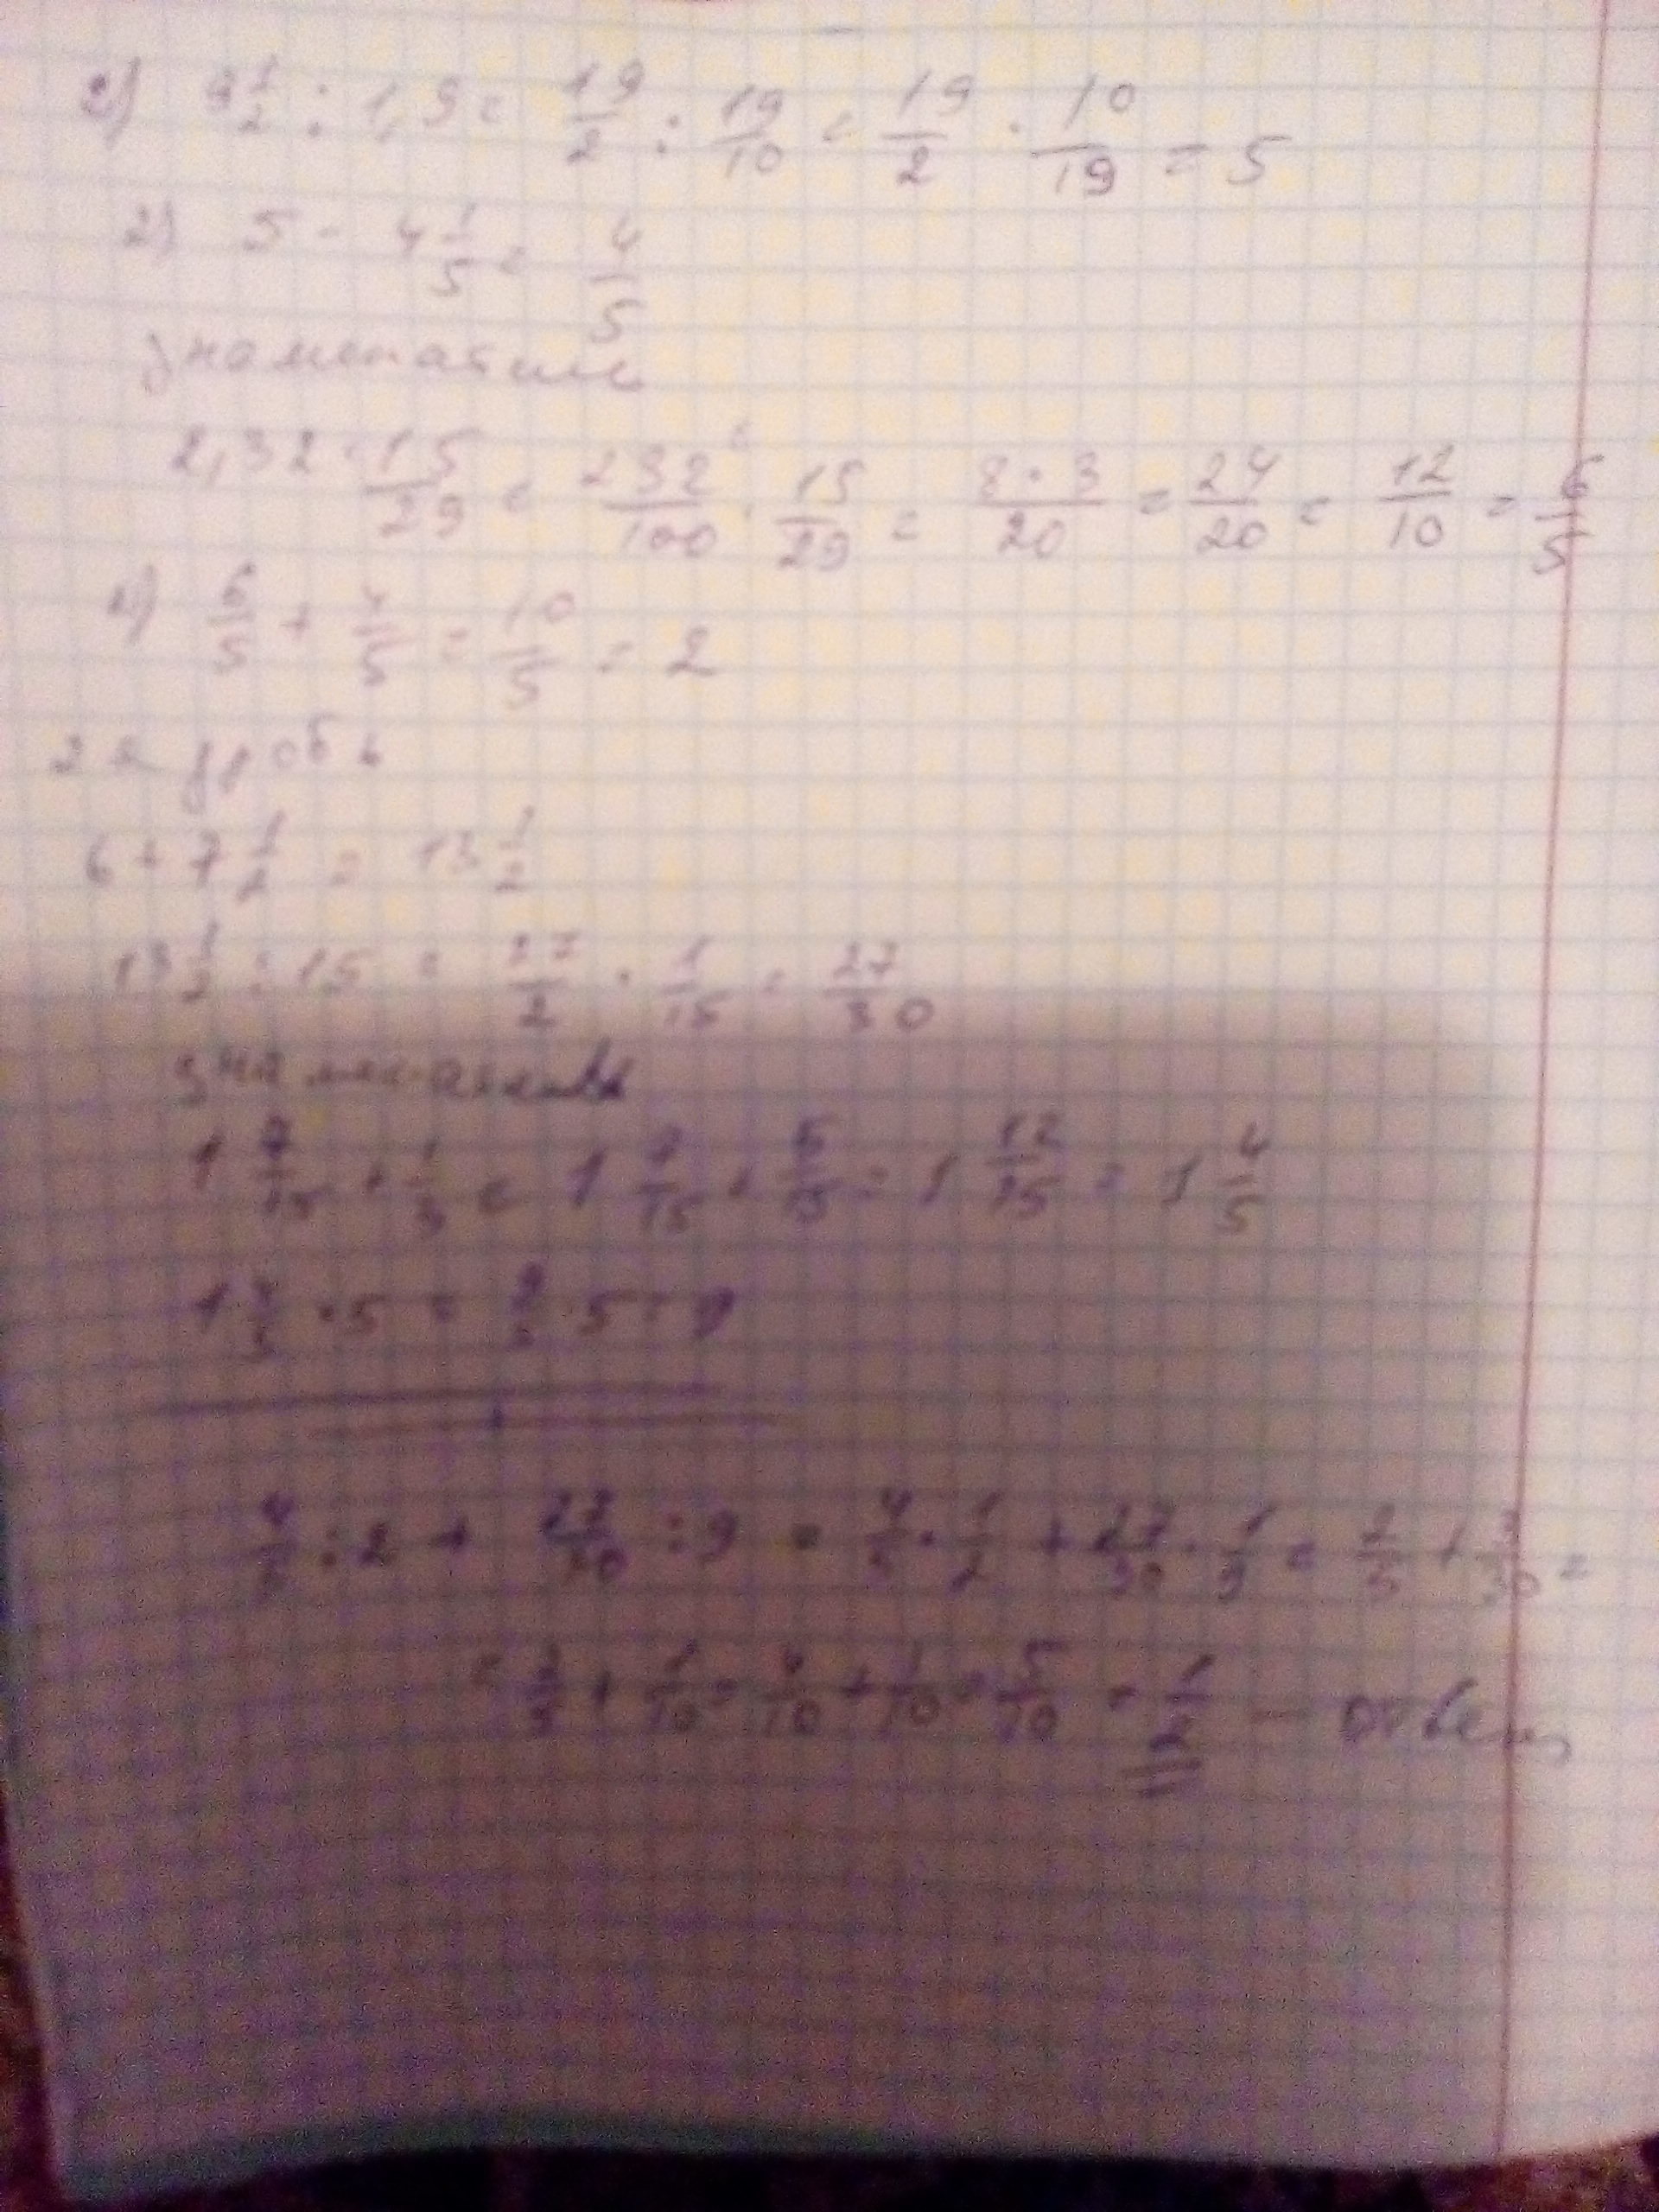 2) 9 1/2 : 1,9 = 19/2 : 19/10 = 19/2 · 10/19 = 5
2) 5 - 4 1/5 = 4/5
знаменатель
2,32 · 15/29 = 232/100 · 15/29 = 8·3/20 = 24/20 = 12/10 = 6/5
2) 6/5 + 4/5 = 10/5 = 2
2я дробь
6 + 7 1/2 = 13 1/2
13 1/2 : 15 = 27/2 · 1/15 = 27/30
знаменатель
1 7/15 + 1/3 = 1 7/15 + 5/15 = 1 12/15 = 1 4/5
1 4/5 · 5 = 9/5 · 5 = 9
4/5 : 2 + 27/30 : 9 = 4/5 · 1/2 + 27/30 · 1/9 = 2/5 + 3/30 =
= 2/5 + 1/10 = 4/10 + 1/10 = 5/10 = 1/2 — ответ